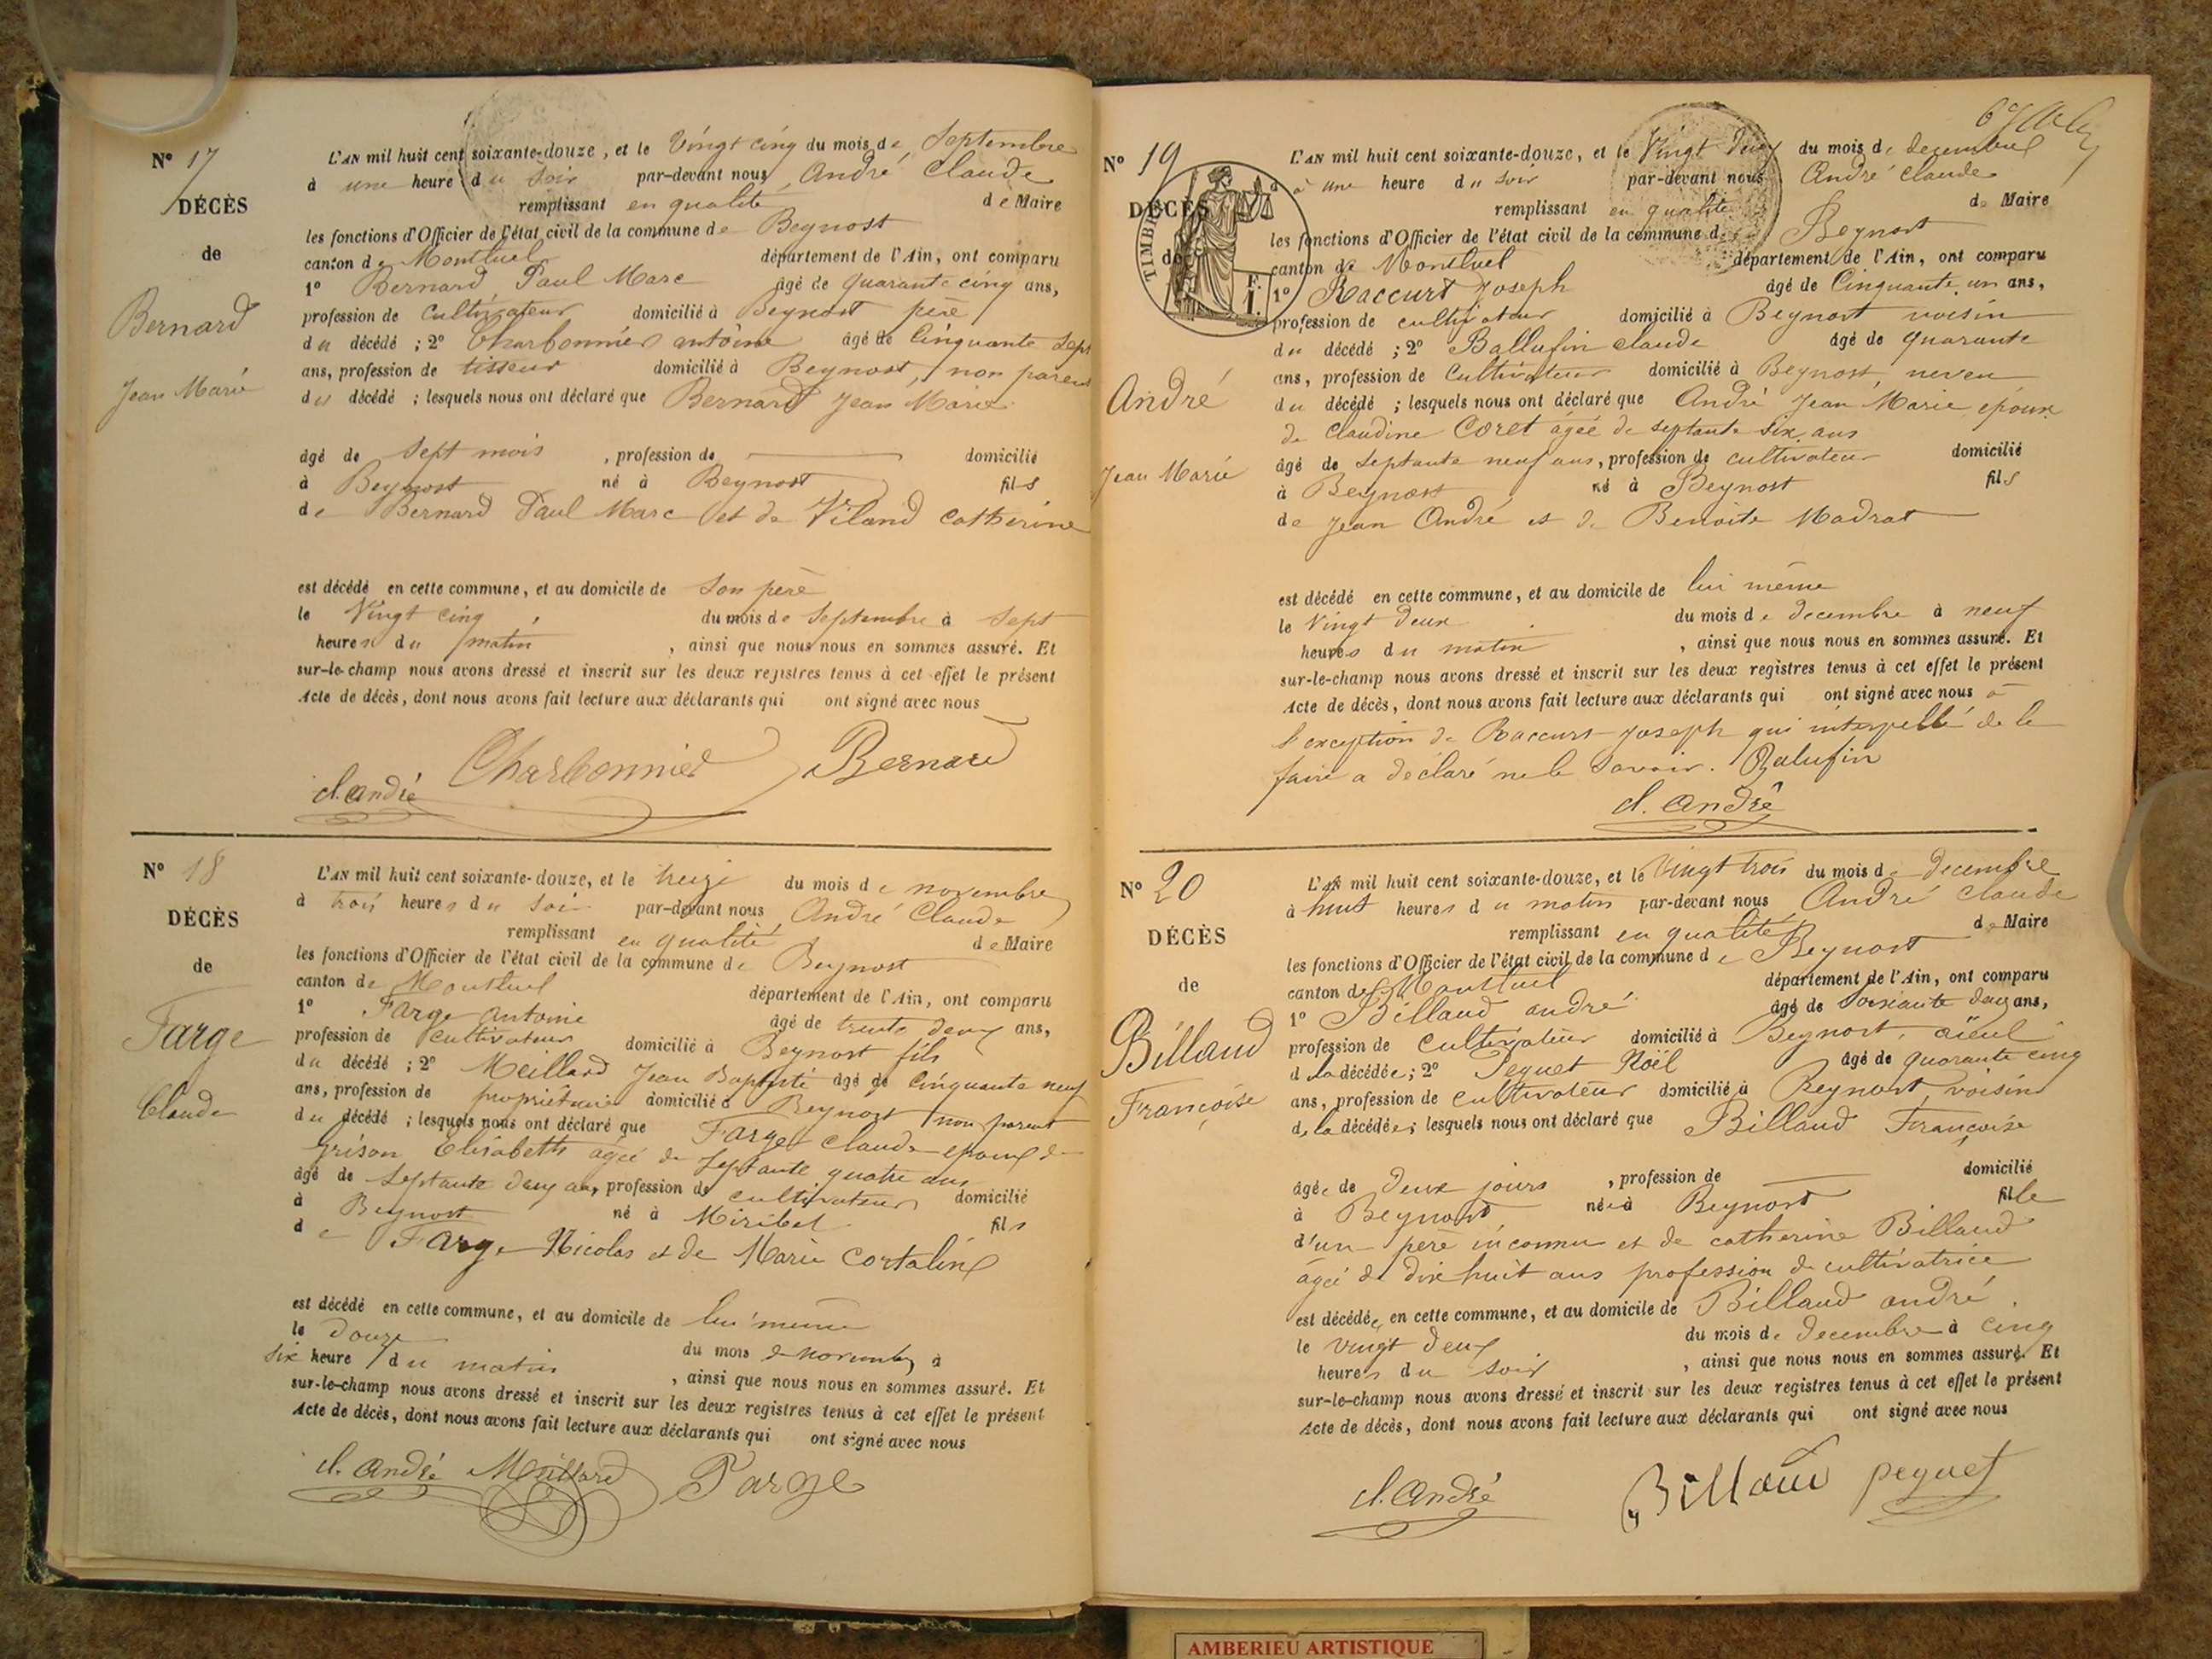 N° 17
DÉCÈS
de
Bernard
Jean Marie
L'AN mil huit cent soixante-douze, et le Vingt cinq du mois de Septembre
à une heure du soir par-devant nous André Claude
remplissant en qualité de Maire
les fonctions d'Officier de l'état civil de la commune de Beynost
canton de Montluel département de l'Ain, ont comparu
1° Bernard Paul Marc âgé de quarante cinq ans,
profession de cultivateur domicilié à Beynost père
du décédé ; 2° Charbonnier antoine âgé de Cinquante Sept
ans, profession de tisseur domicilié à Beynost, non parent
du décédé ; lesquels nous ont déclaré que Bernard Jean Marie
âgé de Sept mois , profession de domicilié
à Beynost né à Beynost fils
de Bernard Paul Marc et de Viland Catherine
est décédé en cette commune, et au domicile de Son père
le Vingt cinq du mois de Septembre à Sept
heures du matin , ainsi que nous nous en sommes assuré. Et
sur-le-champ nous avons dressé et inscrit sur les deux registres tenus à cet effet le présent
Acte de décès, dont nous avons fait lecture aux déclarants qui ont signé avec nous
cl. André Charbonnier Bernard
N° 18
DÉCÈS
de
Farge
Claude
L'AN mil huit cent soixante-douze, et le treize du mois de novembre
à trois heures du soir par-devant nous André Claude
remplissant en qualité de Maire
les fonctions d'Officier de l'état civil de la commune de Beynost
canton de Montluel département de l'Ain, ont comparu
1° Farge antoine âgé de trente deux ans,
profession de cultivateur domicilié à Beynost fils
du décédé ; 2° Meillard Jean Baptiste âgé de Cinquante neuf
ans, profession de propriétaire domicilié à Beynost non parent
du décédé ; lesquels nous ont déclaré que Farge Claude epoux de
Grison Elisabeth agée de Septante quatre ans
âgé de Septante deux ans, profession de cultivateur domicilié
à Beynost né à Miribel fils
de Farge Nicolas et de Marie Cortaline
est décédé en cette commune, et au domicile de lui même
le Douze du mois de novembre à
six heure du matin , ainsi que nous nous en sommes assuré. Et
sur-le-champ nous avons dressé et inscrit sur les deux registres tenus à cet effet le présent
Acte de décès, dont nous avons fait lecture aux déclarants qui ont signé avec nous
cl. André Meillard Farge
N° 19
DÉCÈS
de
TIMBRE
F.
1.
André
Jean Marie
L'AN mil huit cent soixante-douze, et le Vingt Deux du mois de decembre
à une heure du soir par-devant nous André claude
remplissant en qualité de Maire
les fonctions d'Officier de l'état civil de la commune de Beynost
canton de Montluel département de l'Ain, ont comparu
1° Raccurt Joseph âgé de Cinquante un ans,
profession de cultivateur domicilié à Beynost voisin
du décédé ; 2° Ballufin claude âgé de quarante
ans, profession de Cultivateur domicilié à Beynost, neveu
du décédé ; lesquels nous ont déclaré que André Jean Marie epoux
de Claudine Coret agée de septante six ans
âgé de septante neuf ans, profession de cultivateur domicilié
à Beynost né à Beynost fils
de Jean André et de Benoite Madrat
est décédé en cette commune, et au domicile de lui même
le Vingt Deux du mois de decembre à neuf
heures du matin , ainsi que nous nous en sommes assuré. Et
sur-le-champ nous avons dressé et inscrit sur les deux registres tenus à cet effet le présent
Acte de décès, dont nous avons fait lecture aux déclarants qui ont signé avec nous à
l'exception de Raccurt Joseph qui interpellé de le
faire a déclaré ne le savoir. Balufin
cl. André
N° 20
DÉCÈS
de
Billaud
Françoise
L'AN mil huit cent soixante-douze, et le Vingt trois du mois de decembre
à huit heures du matin par-devant nous André Claude
remplissant en qualité de Maire
les fonctions d'Officier de l'état civil de la commune de Beynost
canton de Montluel département de l'Ain, ont comparu
1° Billaud andré âgé de Soixante deux ans,
profession de Cultivateur domicilié à Beynost, aïeul
de la décédée ; 2° Peguet Noël âgé de quarante cinq
ans, profession de cultivateur domicilié à Beynost, voisin
de la décédée ; lesquels nous ont déclaré que Billaud Françoise
âgée de Deux jours , profession de domicilié
à Beynost née à Beynost fille
d'un père inconnu et de catherine Billaud
agée de dix huit ans profession de cultivatrice
est décédée en cette commune, et au domicile de Billaud andré
le vingt deux du mois de decembre à cinq
heures du soir , ainsi que nous nous en sommes assuré. Et
sur-le-champ nous avons dressé et inscrit sur les deux registres tenus à cet effet le présent
Acte de décès, dont nous avons fait lecture aux déclarants qui ont signé avec nous
cl. André Billaud peguet
AMBERIEU ARTISTIQUE